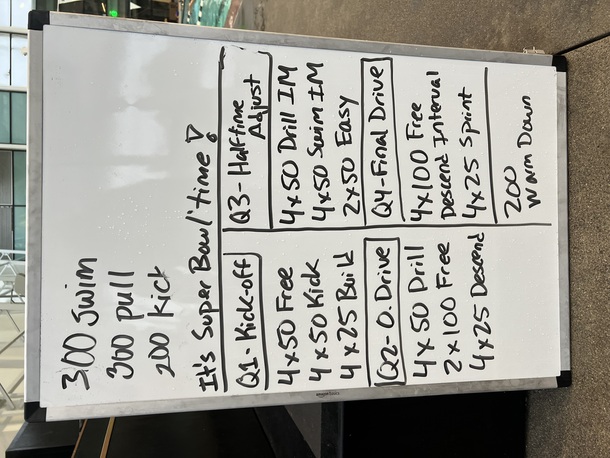 300 Swim
300 pull
200 kick
It's Super Bowl time!
Q1-Kick-off
4x50 Free
4x50 Kick
4x25 Build
Q2-O.Drive
4x50 Drill
2x100 Free
4x25 Descend
Q3-Halftime
Adjust
4x50 Drill IM
4x50 Swim IM
2x50 Easy
Q4-Final Drive
4x100 Free
Descend Interval
4x25 Sprint
200
Warm Down